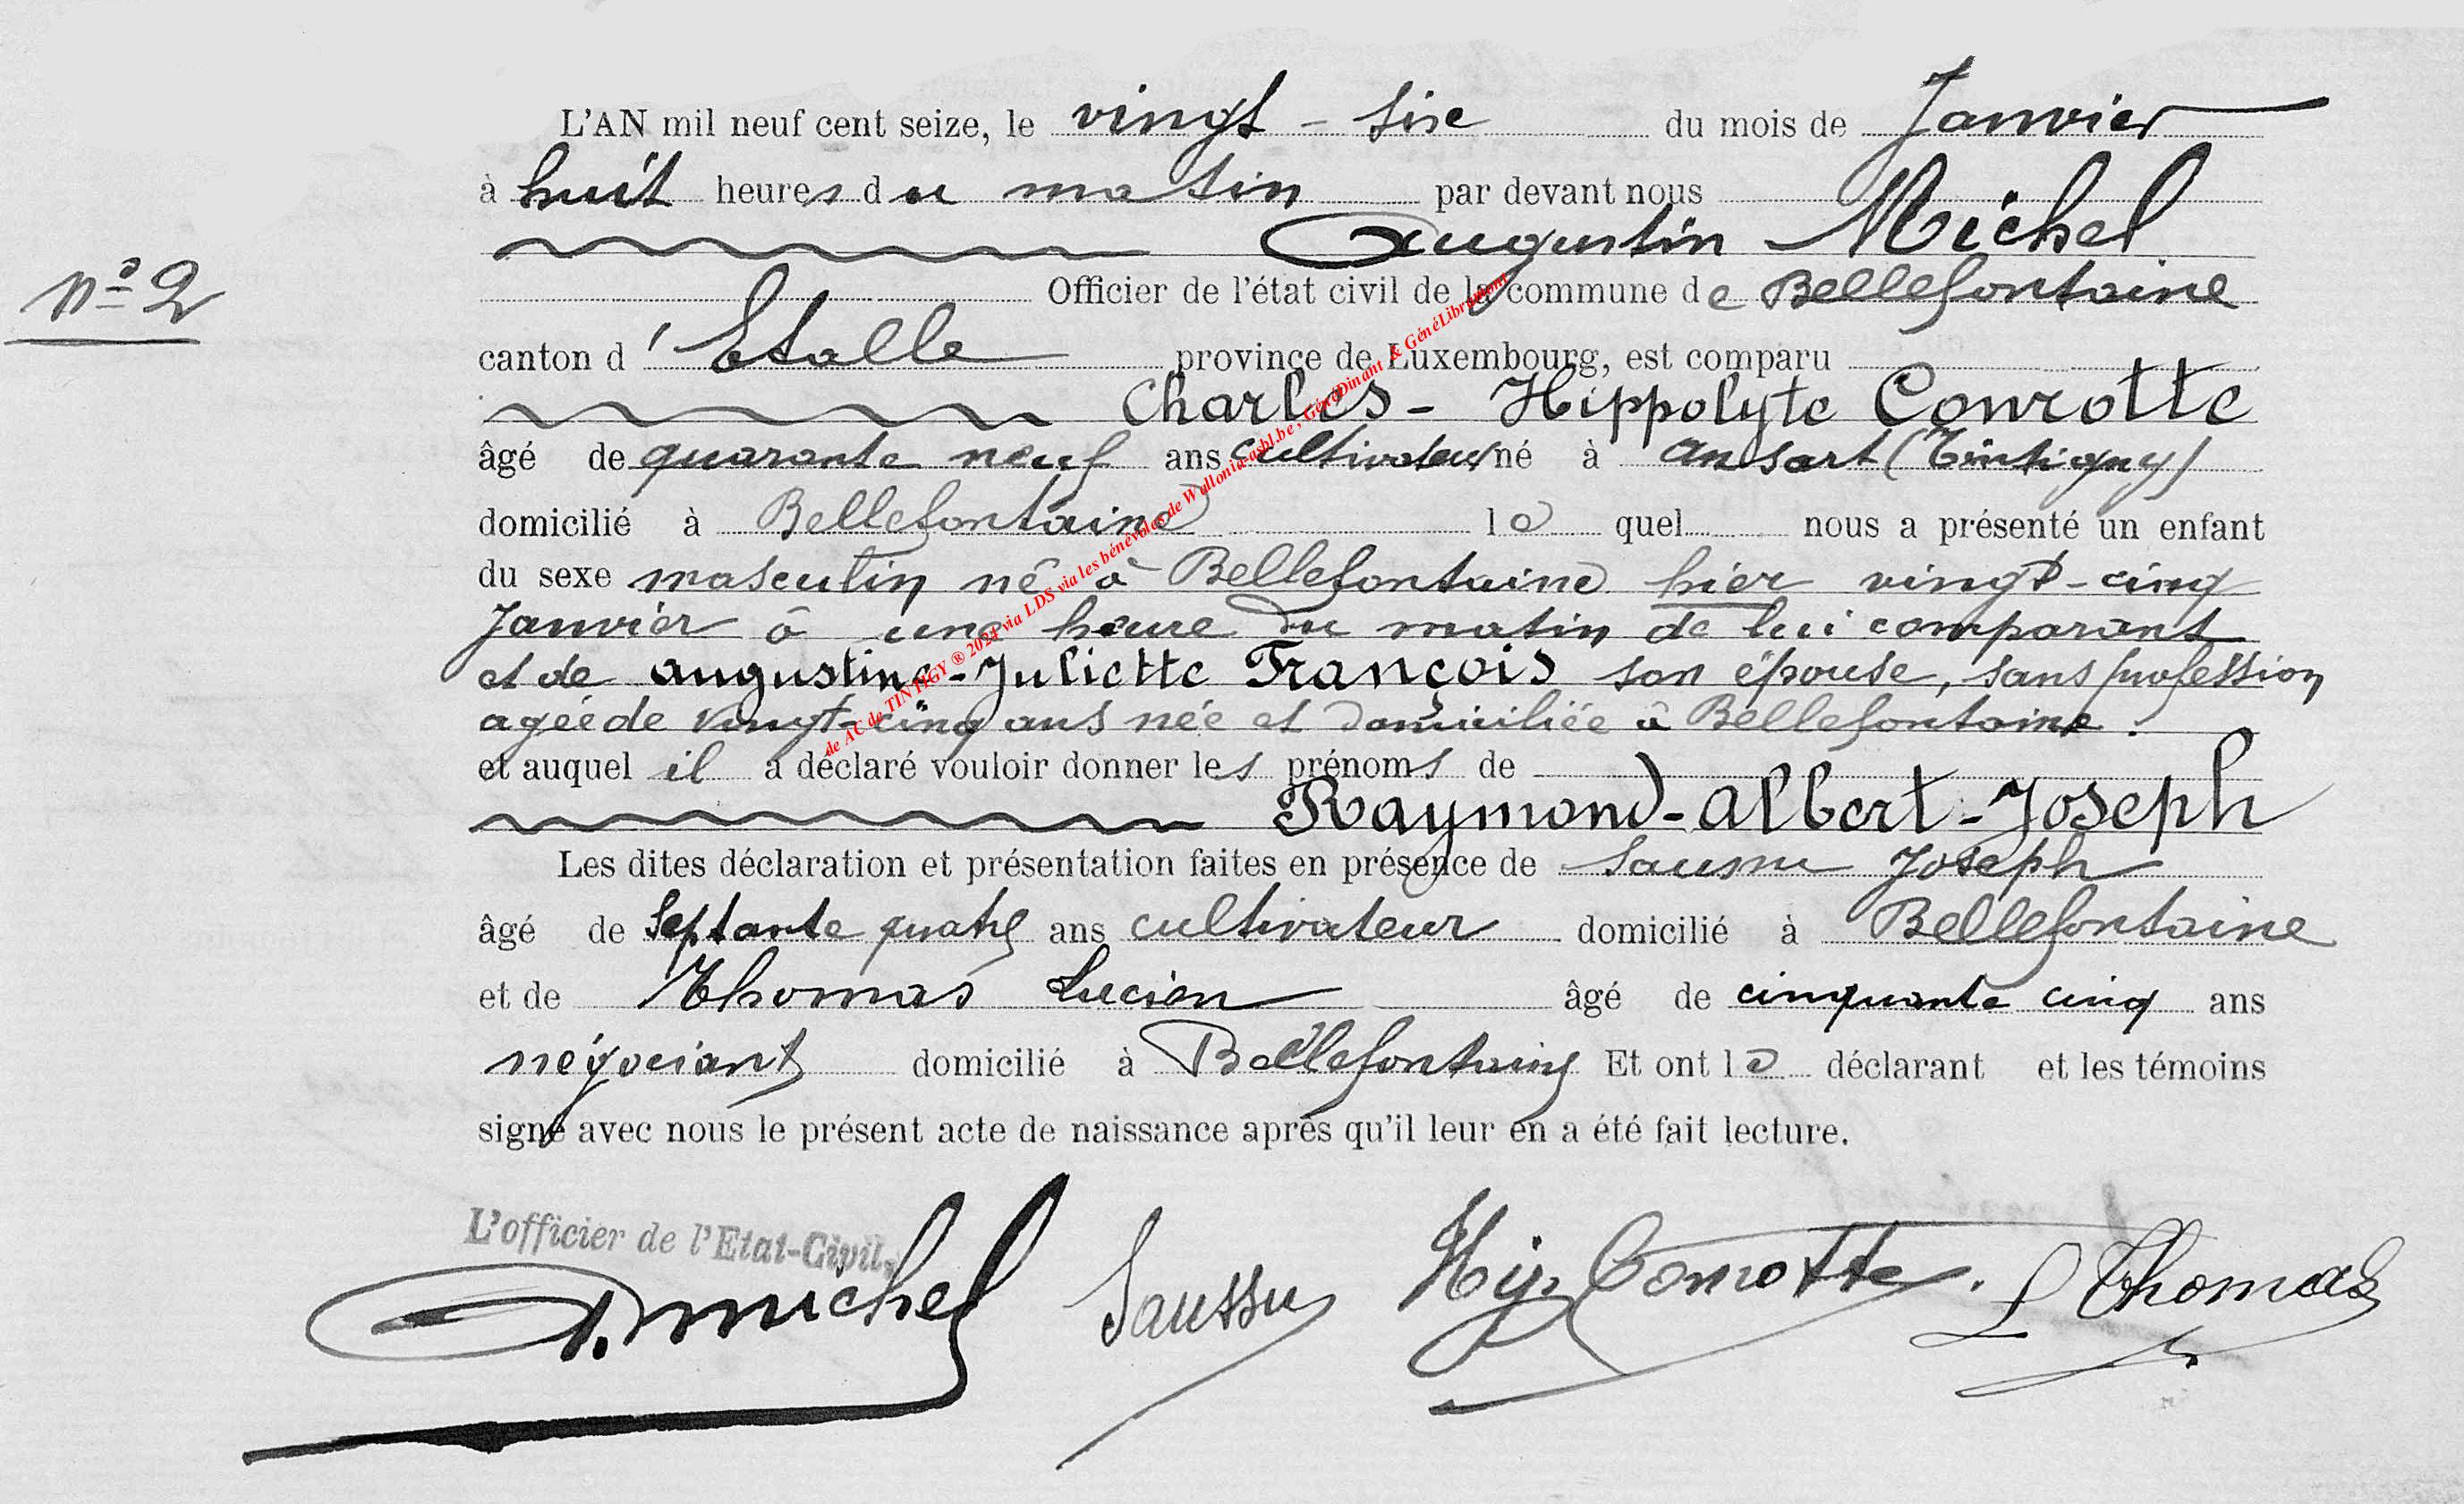 L'AN mil neuf cent seize, le vingt - six du mois de Janvier
à huit heures du matin par devant nous
Augustin Michel
n° 2
Officier de l'état civil de la commune de Bellefontaine
canton d'Etalle province de Luxembourg, est comparu
Charles - Hippolyte Conrotte
âgé de quarante neuf ans cultivateur né à Ansart (Tintigny)
domicilié à Bellefontaine le quel nous a présenté un enfant
du sexe masculin né à Bellefontaine hier vingt-cinq
Janvier à une heure du matin de lui comparant
et de Augustine-Juliette François son épouse, sans profession
agée de vingt-cinq ans née et domiciliée à Bellefontaine.
et auquel il a déclaré vouloir donner les prénoms de
Raymond-Albert-Joseph
Les dites déclaration et présentation faites en présence de Joseph
âgé de septante quatre ans cultivateur domicilié à Bellefontaine
et de Thomas Lucien âgé de cinquante cinq ans
négociant domicilié à Bellefontaine Et ont le déclarant et les témoins
signé avec nous le présent acte de naissance après qu'il leur en a été fait lecture.
L'officier de l'Etat-Civil,
A. Michel Hip. Conrotte. L Thomas
de AC de TINTIGY ® 2024 via LDS via les bénévoles de Wallonia-asbl.be, GénéDinant & GénéLibramont